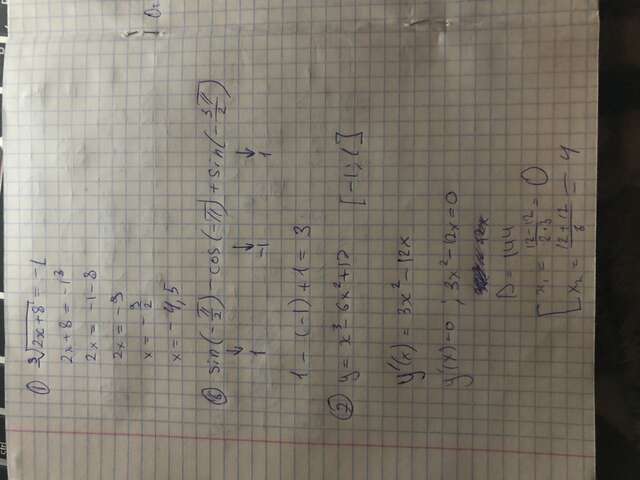 ① ∛(2x+8) = -1
2x+8 = -1³
2x = -1-8
2x = -9
x = -9/2
x = -4,5
⑥ sin(-π/2) - cos(-π) + sin(-3π/2)
↓ ↓ ↓
1 -1 1
1 - (-1) + 1 = 3
⑦ y = x³-6x²+12 [-1; 1]
y'(x) = 3x²-12x
y'(x)=0 ; 3x²-12x=0
D = 144
x₁ = (12-12)/(2·3) = 0
x₂ = (12+12)/6 = 4